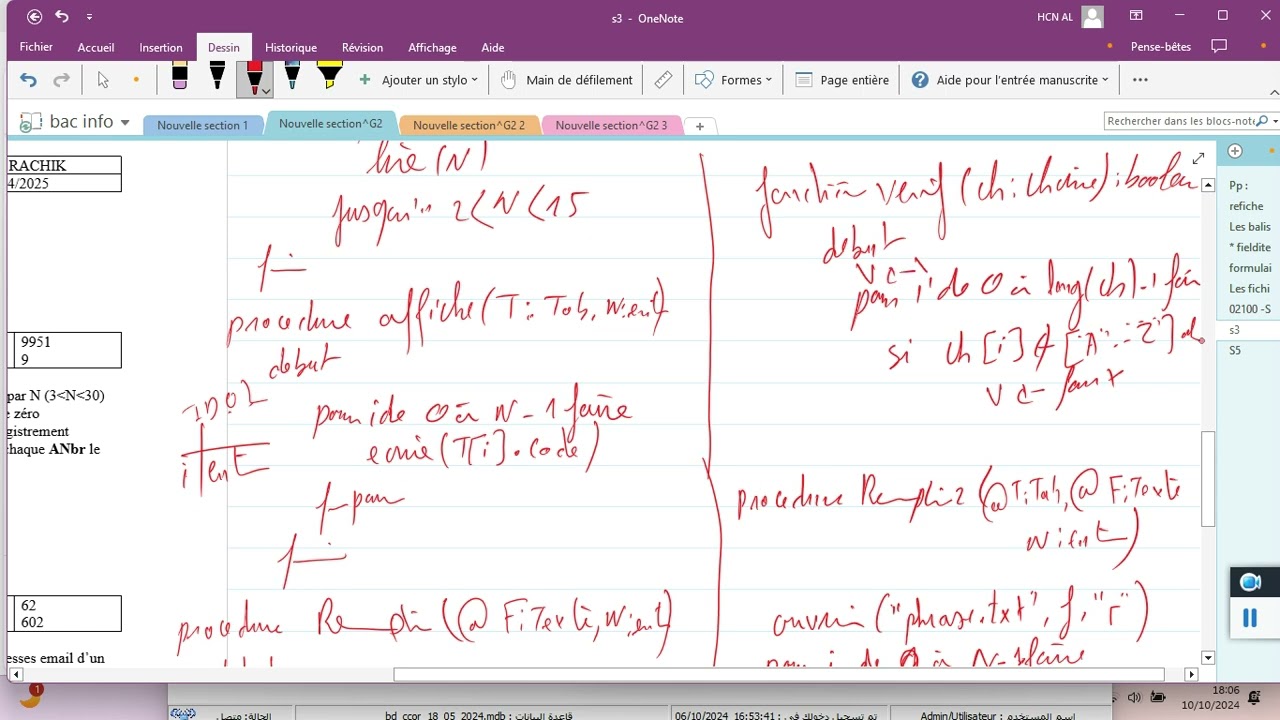 s3 - OneNote
HCN AL
Fichier Accueil Insertion Dessin Historique Révision Affichage Aide
Pense-bêtes
Ajouter un stylo Main de défilement Formes Page entière Aide pour l'entrée manuscrite
bac info
Nouvelle section 1 Nouvelle section^G2 Nouvelle section^G2 2 Nouvelle section^G2 3
Rechercher dans les blocs-note
RACHIK
4/2025
9951
9
par N (3<N<30)
e zéro
gistrement
chaque ANbr le
62
602
esses email d'un
lire (N)
jusqu'à 2<N<15
procedure affiche (T: Tab, N:ent)
debut
pour i de 0 à N-1 faire
ecrire (T[i].code)
f-pour
T.D.O.L
i ent
procedure Rempli (@ F:Texte, N:ent)
fonction verif (ch: chaine): boolean
debut
pour i de 0 à long(ch)-1 fai
si ch[i] ∉ ["A".."Z"] al
V <- faux
procedure Rempli2 (@T:Tab, @ F:Texte
N:ent)
ouvrir ("phrase.txt", f, "r")
pour i de 0 à N-1 faire
Pp :
refiche
Les balis
* fieldite
formulai
Les fichi
02100 -S
s3
S5
1
18:06
10/10/2024
الحالة: متصل
قاعدة البيانات : bd_ccor_18_05_2024.mdb
تم تسجيل دخولك في : 06/10/2024 16:53:41
اسم المستخدم : Admin/Utilisateur